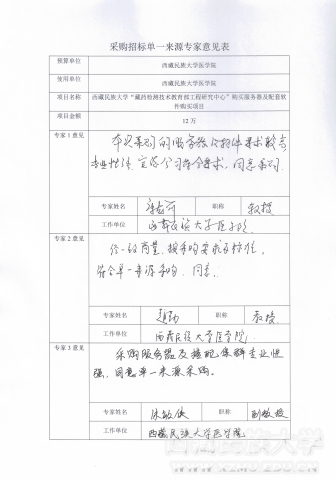 采购招标单一来源专家意见表
预算单位
西藏民族大学医学院
使用单位
西藏民族大学医学院
项目名称
西藏民族大学“藏药检测技术教育部工程研究中心”购买服务器及配套软
件购买项目
项目金额
12万
专家1意见
专业性强
同意
专家姓名
职称
教授
工作单位
西藏民族大学医学院
专家2意见
经一致商量
符合单一来源采购，同意。
专家姓名
职称
教授
工作单位
西藏民族大学医学院
专家3意见
采购服务器及搭配集群专业性
强，同意单一来源采购。
专家姓名
职称
副教授
工作单位
西藏民族大学医学院
西藏民族大学
WWW.XZMU.EDU.CN